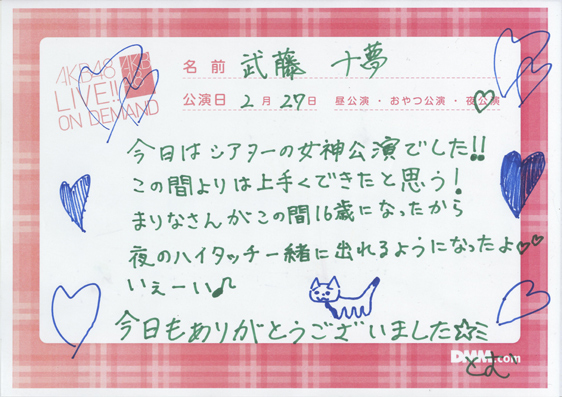 AKB48
LIVE!!
ON DEMAND
名 前 武藤 十夢
公演日 2 月 27 日 昼公演 ・ おやつ公演 ・ 夜公演
今日はシアターの女神公演でした!!
この間よりは上手くできたと思う!
まりなさんがこの間16歳になったから
夜のハイタッチ一緒に出れるようになったよ♡♡
いぇーい♪
今日もありがとうございました☆ミ
DMM.com
とむ